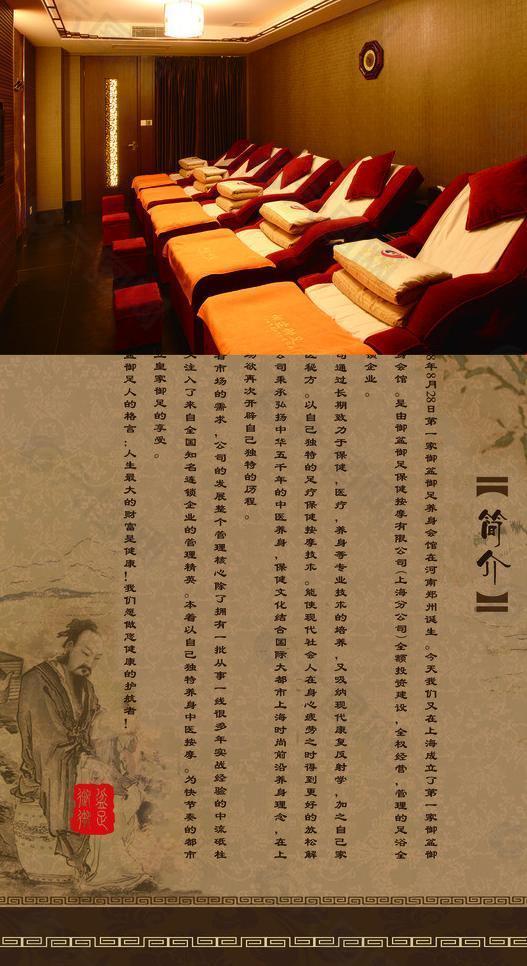 【简介】
8年8月28日第一家御盆御足养身会馆在河南郑州诞生。今天我们又在上海成立了第一家御盆御
会馆。是由御盆御足保健按摩有限公司(上海分公司)全额投资建设,全权经营,管理的足浴全
锁企业。
司通过长期致力于保健,医疗,养身等专业技术的培养,又吸纳现代康复反射学,加之自己家
医秘方。以自己独特的足疗保健按摩技术。能使现代社会人在身心疲劳之时得到更好的放松解
公司秉承弘扬中华五千年的中医养身,保健文化结合国际大都市上海时尚前沿养身理念,在上
场欲再次开辟自己独特的历程。
着市场的需求,公司的发展整个管理核心除了拥有一批从事一线很多年实战经验的中流砥柱
又注入了来自全国知名连锁企业的管理精英。本着以自己独特养身中医按摩。为快节奏的都市
皇家御足的享受。
盆御足人的格言:人生最大的财富是健康!我们愿做您健康的护航者!